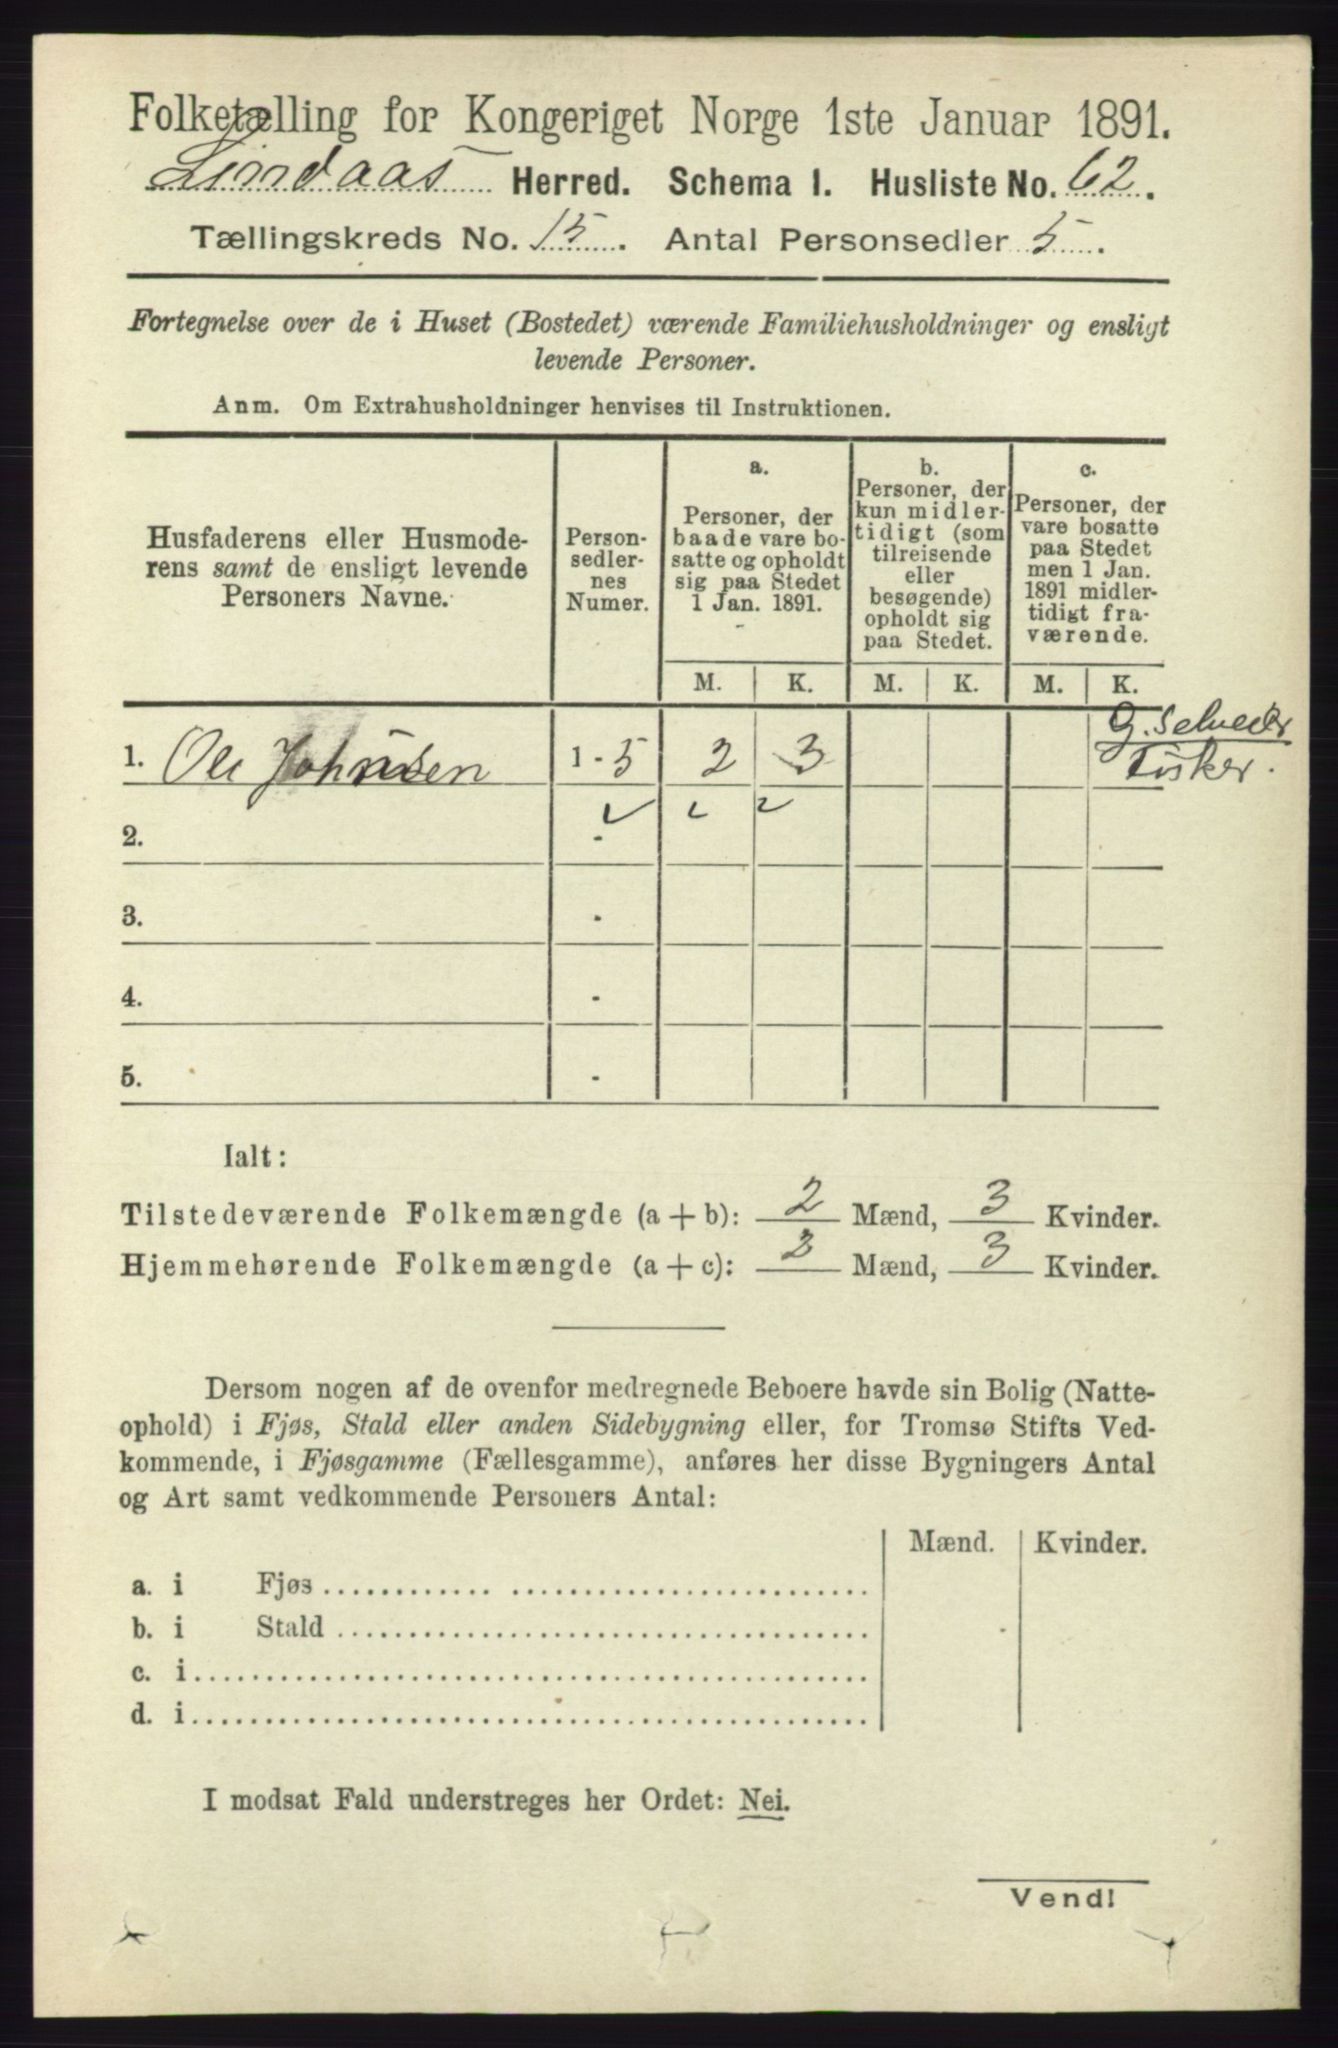 Folketælling for Kongeriget Norge 1ste Januar 1891.
Lindaas Herred. Schema I. Husliste No. 62.
Tællingskreds No. 15. Antal Personsedler 5.
Fortegnelse over de i Huset (Bostedet) værende Familiehusholdninger og ensligt
levende Personer.
Anm. Om Extrahusholdninger henvises til Instruktionen.
Husfaderens eller Husmode-
rens samt de ensligt levende
Personers Navne.
Person-
sedler-
nes
Numer.
a.
Personer, der
baade vare bo-
satte og opholdt
sig paa Stedet
1 Jan. 1891.
b.
Personer, der
kun midler-
tidigt (som
tilreisende
eller
besøgende)
opholdt sig
paa Stedet.
c.
Personer, der
vare bosatte
paa Stedet
men 1 Jan.
1891 midler-
tidigt fra-
værende.
M. K. M. K. M. K.
G. Selveier
1. Ole Johnsen 1 - 5 2 3 Fisker.
2. -
3. -
4. -
5. -
Ialt:
Tilstedeværende Folkemængde (a + b): 2 Mænd, 3 Kvinder.
Hjemmehørende Folkemængde (a + c): 2 Mænd, 3 Kvinder.
Dersom nogen af de ovenfor medregnede Beboere havde sin Bolig (Natte-
ophold) i Fjøs, Stald eller anden Sidebygning eller, for Tromsø Stifts Ved-
kommende, i Fjøsgamme (Fællesgamme), anføres her disse Bygningers Antal
og Art samt vedkommende Personers Antal:
Mænd. Kvinder.
a. i Fjøs
b. i Stald
c. i
d. i
I modsat Fald understreges her Ordet: Nei.
Vend!